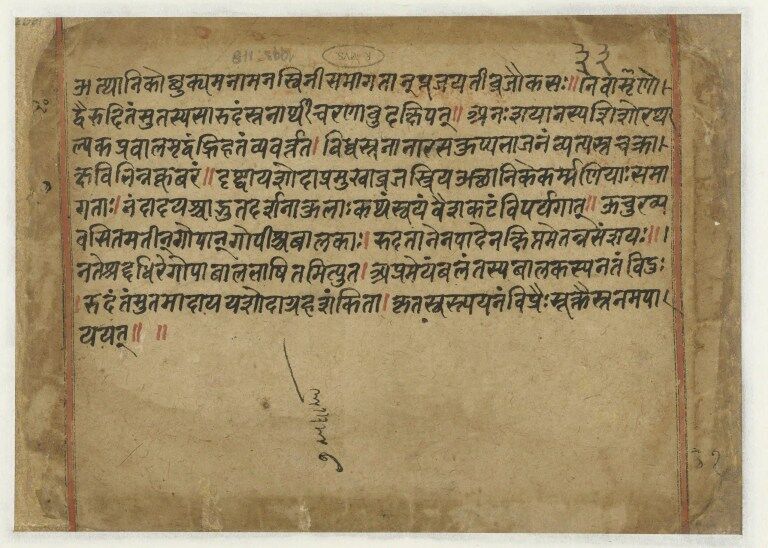 ३३
औत्थानिकौत्सुक्यमनामनस्विनीसमागतान्पूजयतीव्रजौकसः॥नैवाशृणो
द्वैरुदितंसुतस्यसारुदंस्तनार्थीचरणावुदक्षिपत्॥अधःशयानस्यशिशोरथा
ल्पकप्रवालमृद्वंघ्रिहतंव्यवर्त्तत।विध्वस्तनानारसकुप्यभाजनंव्यत्यस्तचक्रा
क्षविभिन्नकूबरं॥दृष्ट्वायशोदाप्रमुखाव्रजस्त्रियऔत्थानिकेकर्म्मणियाःसमा
गताः।नंदादयश्चाद्भुतदर्शनाकुलाःकथंस्वयंवैशकटंविपर्यगात्॥ऊचुरव्य
वसितमतीन्गोपान्गोपीश्चबालकाः।रुदतानेनपादेनक्षिप्तमेतन्नसंशयः॥
नतेश्रद्दधिरेगोपाबालभाषितमित्युत।अप्रमेयंबलंतस्यबालकस्यनतेविदुः
।रुदंतंसुतमादाययशोदाग्रहशंकिता।कृतस्वस्त्ययनंविप्रैःसूक्तैस्तनमपा
ययत्॥॥